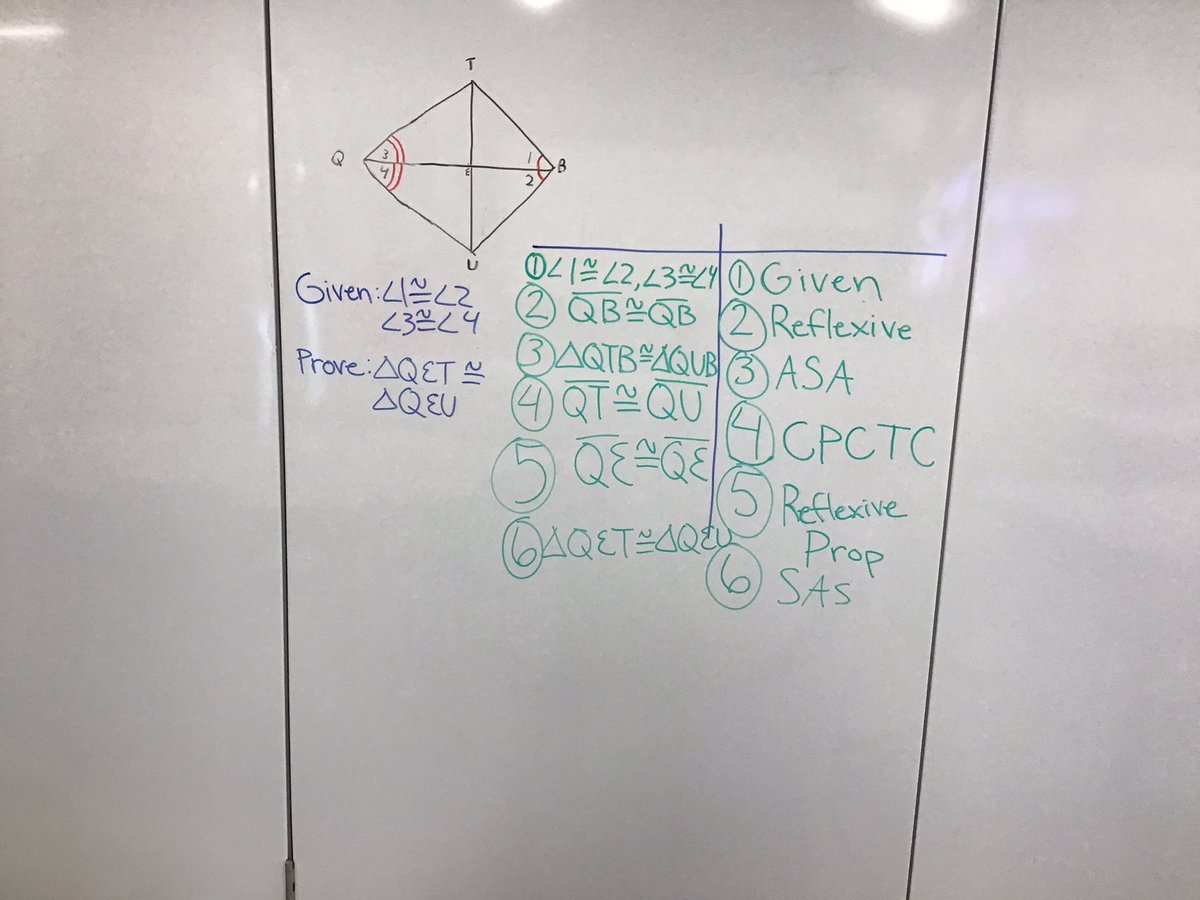 T
Q 3 1 B
4 E 2
U
Given: ∠1≅∠2
∠3≅∠4
Prove: △QET ≅
△QEU
① ∠1≅∠2, ∠3≅∠4 ① Given
② QB≅QB ② Reflexive
③ △QTB≅△QUB ③ ASA
④ QT≅QU ④ CPCTC
⑤ QE≅QE ⑤ Reflexive
Prop
⑥ △QET≅△QEU ⑥ SAS